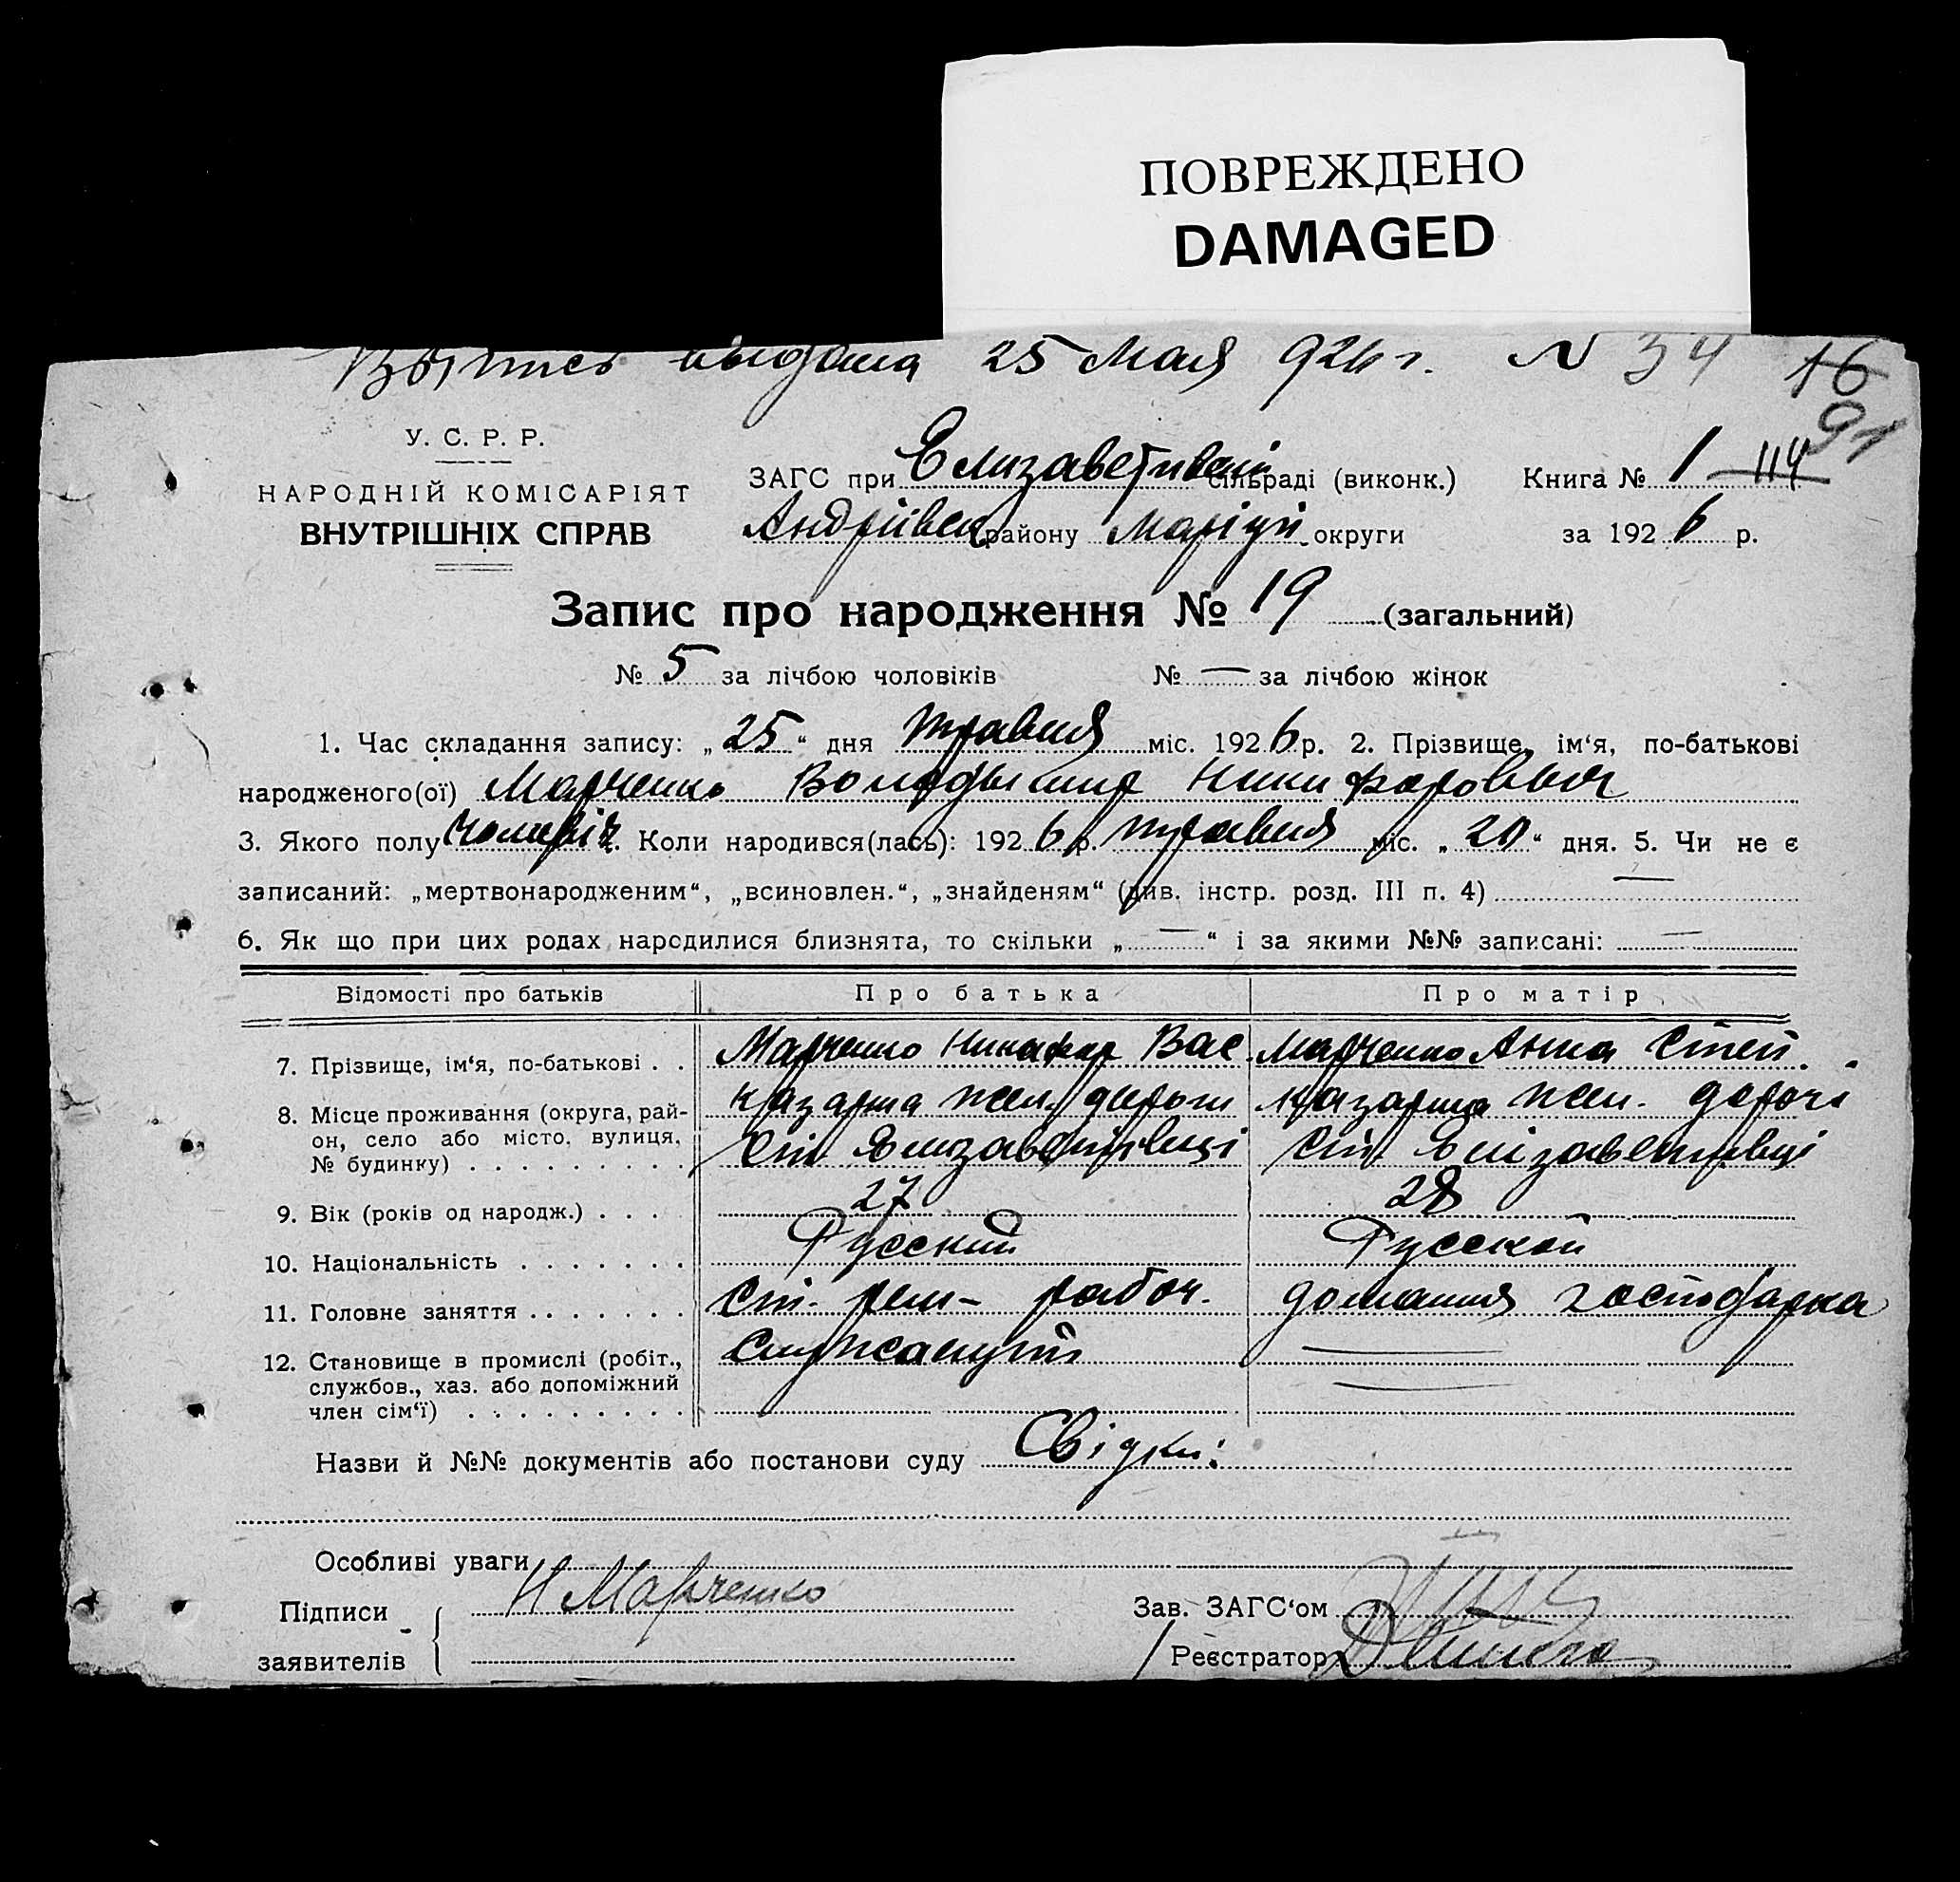 ПОВРЕЖДЕНО
DAMAGED
Выпись выдана 25 Мая 926 г. N 34 16
91
У. С. Р. Р.
НАРОДНІЙ КОМІСАРІЯТ
ВНУТРІШНІХ СПРАВ
ЗАГС при Елизаветивскій сільраді (виконк.) Книга № 1 114
Андріївск району Маріуп. округи за 1926 р.
Запис про народження № 19 (загальний)
№ 5 за лічбою чоловіків № — за лічбою жінок
1. Час складання запису: „25“ дня травня міс. 1926 р. 2. Прізвище, ім'я, по-батькові
народженого(ої) Марченко Володымир Никифорович
3. Якого полу чоловіч. Коли народився(лась): 1926 р. травня міс. „20“ дня. 5. Чи не є
записаний: „мертвонародженим“, „всиновлен.“, „знайденям“ (див. інстр. розд. III п. 4) —
6. Як що при цих родах народилися близнята, то скільки „—“ і за якими №№ записані: —
Відомості про батьків Про батька Про матір
7. Прізвище, ім'я, по-батькові . . Марченко Никифор Вас. Марченко Анна Степ.
8. Місце проживання (округа, рай-
он, село або місто, вулиця,
№ будинку) . . . . . . . . .
казарма жел. дороги казарма жел. дорогі
ст. Єлизаветівці ст. Єлізаветівці
9. Вік (років од народж.) . . . . 27 28
10. Національність . . . . . . . Русский Русской
11. Головне заняття . . . . . . . ст. рем- рабоч. домашня господарка
12. Становище в промислі (робіт.,
службов., хаз. або допоміжний
член сім'ї) . . . . . . . . .
Назви й №№ документів або постанови суду Свідки:
Особливі уваги
Підписи Н Марченко Зав. ЗАГС'ом
заявителів Реєстратор